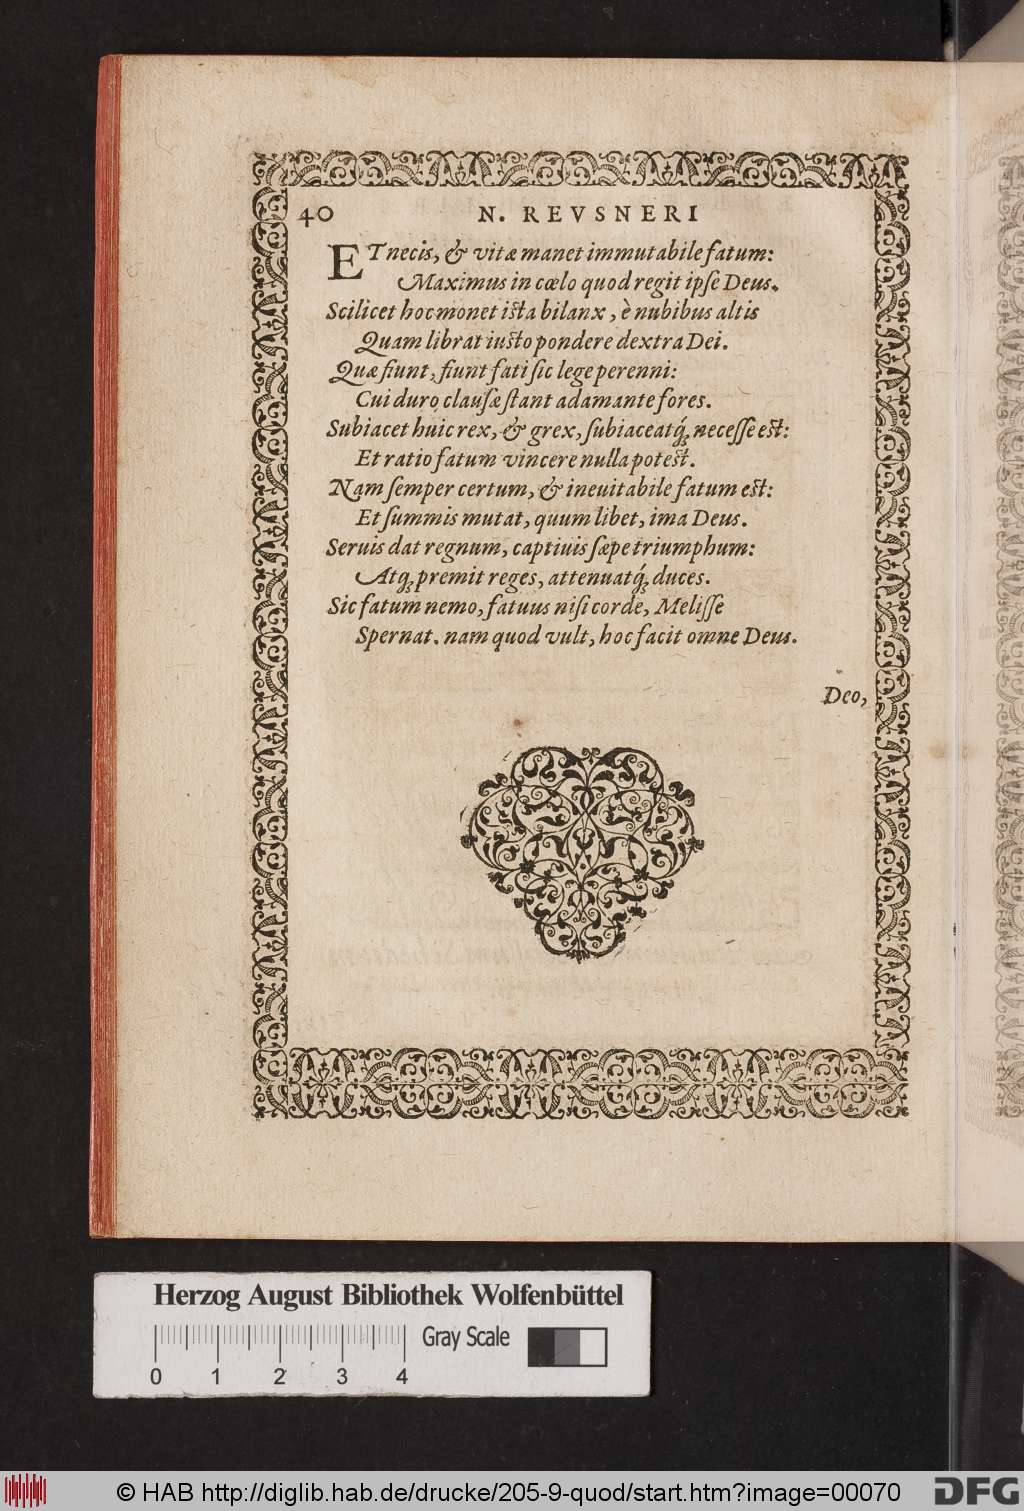 40 N. REVSNERI
ET necis, & vitæ manet immutabile fatum:
Maximus in cœlo quod regit ipſe Deus.
Scilicet hoc monet iſta bilanx, è nubibus altis
Quam librat iuſto pondere dextra Dei.
Quæ fiunt, fiunt fati ſic lege perenni:
Cui duro clauſæ ſtant adamante fores.
Subiacet huic rex, & grex, ſubiaceatq́; neceſſe eſt:
Et ratio fatum vincere nulla poteſt.
Nam ſemper certum, & ineuitabile fatum eſt:
Et ſummis mutat, quum libet, ima Deus.
Seruis dat regnum, captiuis ſæpe triumphum:
Atq; premit reges, attenuatq́; duces.
Sic fatum nemo, fatuus niſi corde, Meliſſe
Spernat. nam quod vult, hoc facit omne Deus.
Deo,
Herzog August Bibliothek Wolfenbüttel
Gray Scale
0 1 2 3 4
© HAB http://diglib.hab.de/drucke/205-9-quod/start.htm?image=00070
DFG